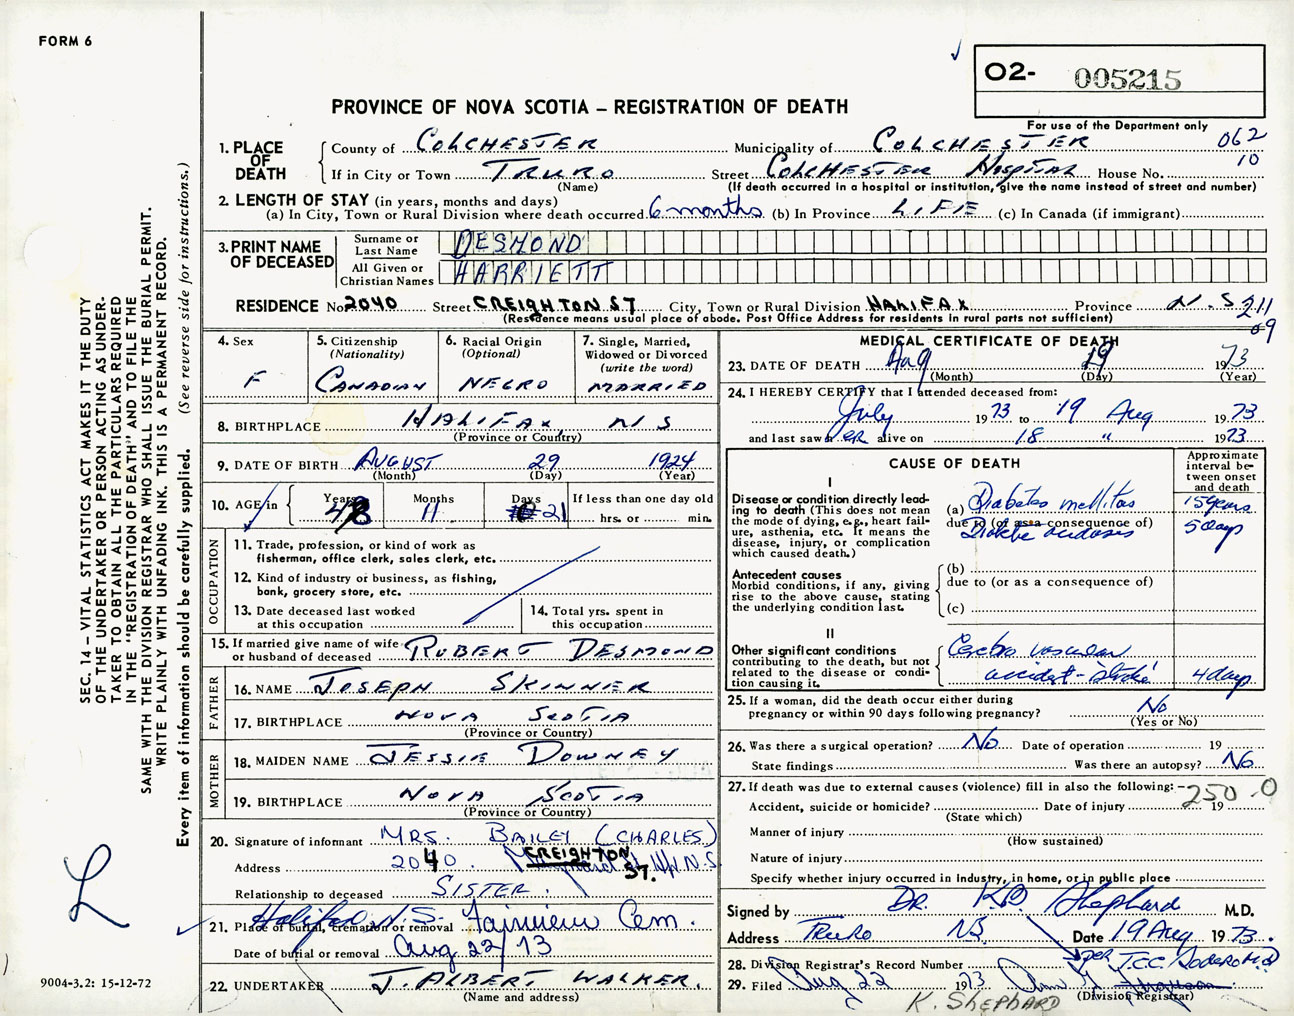 FORM 6
O2- 005215
PROVINCE OF NOVA SCOTIA – REGISTRATION OF DEATH
For use of the Department only
062
10
1. PLACE OF DEATH
County of COLCHESTER Municipality of COLCHESTER
If in City or Town TRURO Street COLCHESTER HOSPITAL House No.
(Name) (If death occurred in a hospital or institution, give the name instead of street and number)
2. LENGTH OF STAY (in years, months and days)
(a) In City, Town or Rural Division where death occurred 6 months (b) In Province LIFE (c) In Canada (if immigrant)
3. PRINT NAME OF DECEASED
Surname or Last Name DESMOND
All Given or Christian Names HARRIETT
RESIDENCE No. 2040 Street CREIGHTON ST City, Town or Rural Division HALIFAX Province N.S 211
09
(Residence means usual place of abode. Post Office Address for residents in rural parts not sufficient)
4. Sex
F
5. Citizenship
(Nationality)
CANADIAN
6. Racial Origin
(Optional)
NEGRO
7. Single, Married,
Widowed or Divorced
(write the word)
MARRIED
8. BIRTHPLACE HALIFAX N S
(Province or Country)
9. DATE OF BIRTH AUGUST 29 1924
(Month) (Day) (Year)
10. AGE in Years 48 Months 11 Days 21 If less than one day old
hrs. or min.
OCCUPATION
11. Trade, profession, or kind of work as
fisherman, office clerk, sales clerk, etc.
12. Kind of industry or business, as fishing,
bank, grocery store, etc.
13. Date deceased last worked
at this occupation
14. Total yrs. spent in
this occupation
15. If married give name of wife
or husband of deceased ROBERT DESMOND
FATHER
16. NAME JOSEPH SKINNER
17. BIRTHPLACE NOVA SCOTIA
(Province or Country)
MOTHER
18. MAIDEN NAME JESSIE DOWNEY
19. BIRTHPLACE NOVA SCOTIA
(Province or Country)
20. Signature of informant MRS. BAILEY (CHARLES)
Address 2040 CREIGHTON ST. N.S.
Relationship to deceased SISTER.
21. Place of burial, cremation or removal Halifax N.S. Fairview Cem.
Date of burial or removal Aug 22/73
22. UNDERTAKER J. ALBERT WALKER.
(Name and address)
MEDICAL CERTIFICATE OF DEATH
23. DATE OF DEATH Aug 19 1973
(Month) (Day) (Year)
24. I HEREBY CERTIFY that I attended deceased from:
July 1973 to 19 Aug 1973
and last saw er alive on 18 " 1973
CAUSE OF DEATH
Approximate interval between onset and death
I
Disease or condition directly leading to death (This does not mean the mode of dying, e.g., heart failure, asthenia, etc. It means the disease, injury, or complication which caused death.)
(a) Diabetes mellitas 15 years
due to (or as a consequence of)
acidosis 5 days
Antecedent causes
Morbid conditions, if any, giving
rise to the above cause, stating
the underlying condition last.
(b)
due to (or as a consequence of)
(c)
II
Other significant conditions
contributing to the death, but not
related to the disease or condition causing it.
Cerebro vascular
accident - stroke 4 days
25. If a woman, did the death occur either during
pregnancy or within 90 days following pregnancy? No
(Yes or No)
26. Was there a surgical operation? No Date of operation 19
State findings Was there an autopsy? No
27. If death was due to external causes (violence) fill in also the following: 250.0
Accident, suicide or homicide? Date of injury 19
(State which)
Manner of injury
(How sustained)
Nature of injury
Specify whether injury occurred in industry, in home, or in public place
Signed by DR. K.D. Shephard M.D.
Address Truro N.S. Date 19 Aug 1973.
28. Division Registrar's Record Number
per
29. Filed Aug 22 1973
(Division Registrar)
K. SHEPHARD
SEC. 14 – VITAL STATISTICS ACT MAKES IT THE DUTY
OF THE UNDERTAKER OR PERSON ACTING AS UNDER-
TAKER TO OBTAIN ALL THE PARTICULARS REQUIRED
IN THE "REGISTRATION OF DEATH" AND TO FILE THE
SAME WITH THE DIVISION REGISTRAR WHO SHALL ISSUE THE BURIAL PERMIT.
WRITE PLAINLY WITH UNFADING INK. THIS IS A PERMANENT RECORD.
Every item of information should be carefully supplied. (See reverse side for instructions.)
9004-3.2: 15-12-72